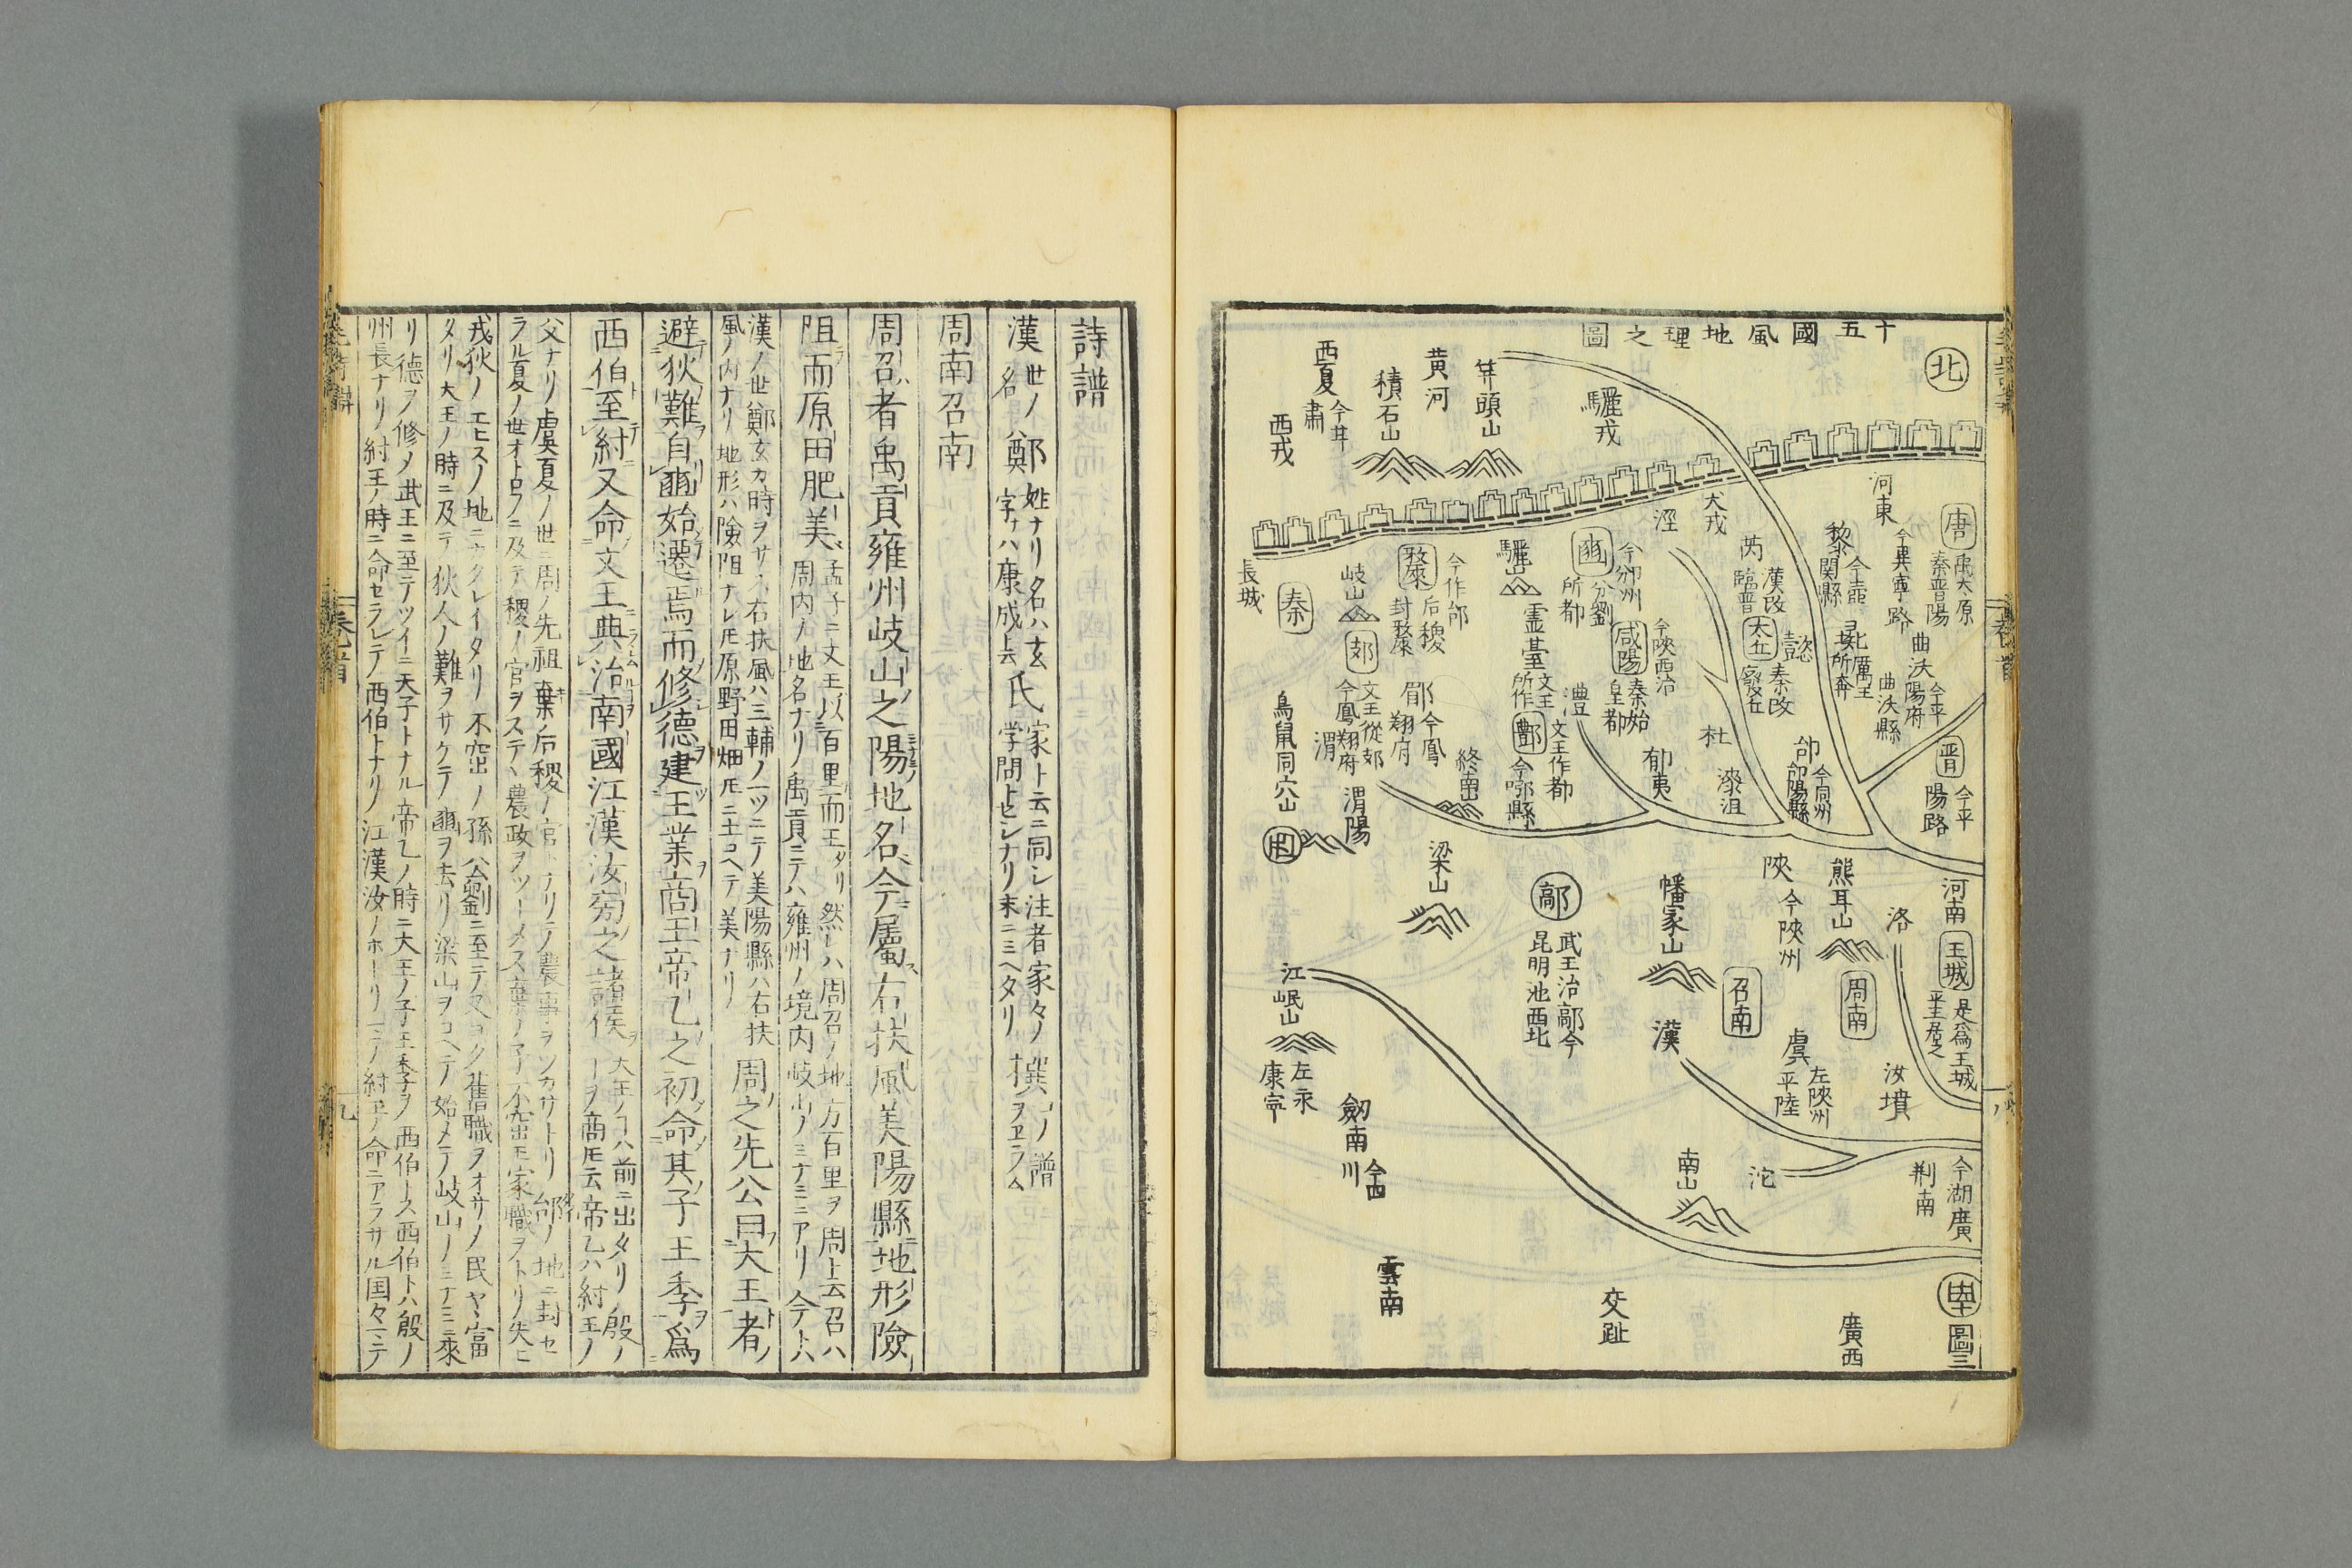 十五國風地理之圖
北
驪戎
笄頭山
黄河
積石山
西夏
今甘肅
西戎
長城
河東
唐
禹太原
秦晋陽
今異寧路
黎
今壺關縣
犬戎
涇
芮
漢改臨晋
豳
今邠州
公劉所都
驪山
漦
今作邰
后稷封漦
岐山
秦
曲沃
今平陽府曲沃縣
彘
厲王所奔
太丘
秦改廢丘
咸陽
今陝西治
秦始皇都
霊臺
文王所作
灃
酆
文王作都
今鄠縣
郊
文王從郊
今鳳翔府
郿
今鳳翔府
渭
終南
鳥鼠同穴山
渭陽
杜
漆沮
郁夷
郃
今同州郃陽縣
晋
今平陽路
河南
王城
是爲王城
平王居之
洛
熊耳山
陝
今陝州
周南
召南
嶓家山
漢
鄗
武王治鄗今
昆明池西北
梁山
江
岷山
左永康軍
劔南
今四川
虞
左陝州平陸
汝墳
今湖廣
荆南
沱
南山
雲南
交趾
廣西
圖三
詩譜
漢世ノ名ハ鄭姓ナリ名ハ玄字ナハ康成ト云氏家ト云ニ同シ注者家々ノ学問ト也シナリ末ニミヘタリ撰コノ譜ヲヱラム
周南召南
周召者禹貢雍州岐山之陽地名今屬右扶風美陽縣地形險
阻而原田肥美孟子ニ文王以百里而王タリ然レハ周召ノ地方百里ヲ周ト云召ハ周内ノ地名ナリ禹貢ニテハ雍州ノ境内岐山ノミナミニアリ今トハ
漢ノ世ハ鄭玄カ時ヲサス右扶風ハ三輔ノ一ツニテ美陽縣ハ右扶風ノ内ナリ地形ハ險阻ナレ𪜈原野田畑𪜈ニ土コヘテ美ナリ周之先公曰大王者
避狄難自豳始遷焉而修德建王業商王帝乙之初命其子王季爲
西伯至紂又命文王典治南國江漢汝旁之諸侯大王ノコハ前ニ出タリ殷ノヲ商𪜈云帝乙ハ紂王ノ
父ナリ虞夏ノ世ニ周ノ先祖棄后稷ノ官トナリテ農事ヲツカサトリ邰ノ地ニ封セ
ラル夏ノ世オトロフニ及テ稷ノ官ヲステ農政ヲツトメス棄ノ子不窋モ家職ヲトリ失ヒ
戎狄ノエヒスノ地ニカクレイタリ不窋ノ孫公劉ニ至テ又ヨク舊職ヲオサメ民ヤヤ富
タリ大王ノ時ニ及テ狄人ノ難ヲサケテ豳ヲ去リ梁山ヲコヘテ始メテ岐山ノミナミニ來
リ德ヲ修メ武王ニ至テツイニ天子トナル帝乙ノ時ニ大王ノ子王季ヲ西伯トス西伯トハ殷ノ
州長ナリ紂王ノ時ニ命セラレテ西伯トナリ江漢汝ノホトリ
九